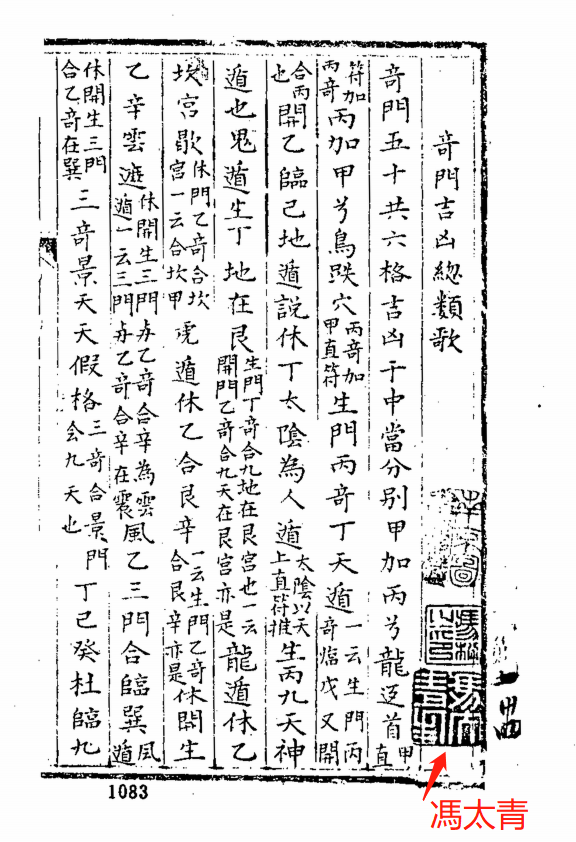 奇門吉凶總類歌
奇門五十共六格吉凶于中當分別甲加丙兮龍迈首甲直
符加丙奇丙加甲兮鳥跌穴丙奇加甲直符生門丙奇丁天遁一云生門丙奇臨戊又開
合丙也開乙臨己地遁說休丁太陰為人遁太陰以天上直符推生丙九天神
遁也鬼遁生丁地在艮生門丁奇合九地在艮宮也一云開門乙奇合九天在艮宮亦是龍遁休乙
坎宮歇休門乙奇合坎宮一云合坎甲虎遁休乙合艮辛一云生門乙奇合艮辛亦是休開生
乙辛雲遁休開生三門与乙奇合辛為雲遁一云三門与乙奇合辛在震風乙三門合臨巽風遁
休開生三門合乙奇在巽三奇景天天假格三奇合景門會九天也丁己癸杜臨九
1083
馮太青